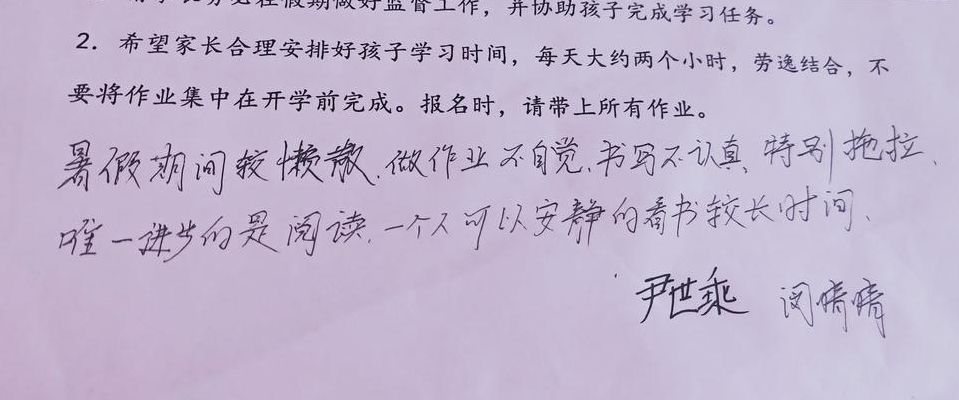 请家长务必在假期做好监督工作，并协助孩子完成学习任务。
2. 希望家长合理安排好孩子学习时间，每天大约两个小时，劳逸结合，不
要将作业集中在开学前完成。报名时，请带上所有作业。
暑假期间较懒散、做作业不自觉、书写不认真、特别拖拉、
唯一进步的是阅读、一个人可以安静的看书较长时间、
尹世乘 闵晴晴